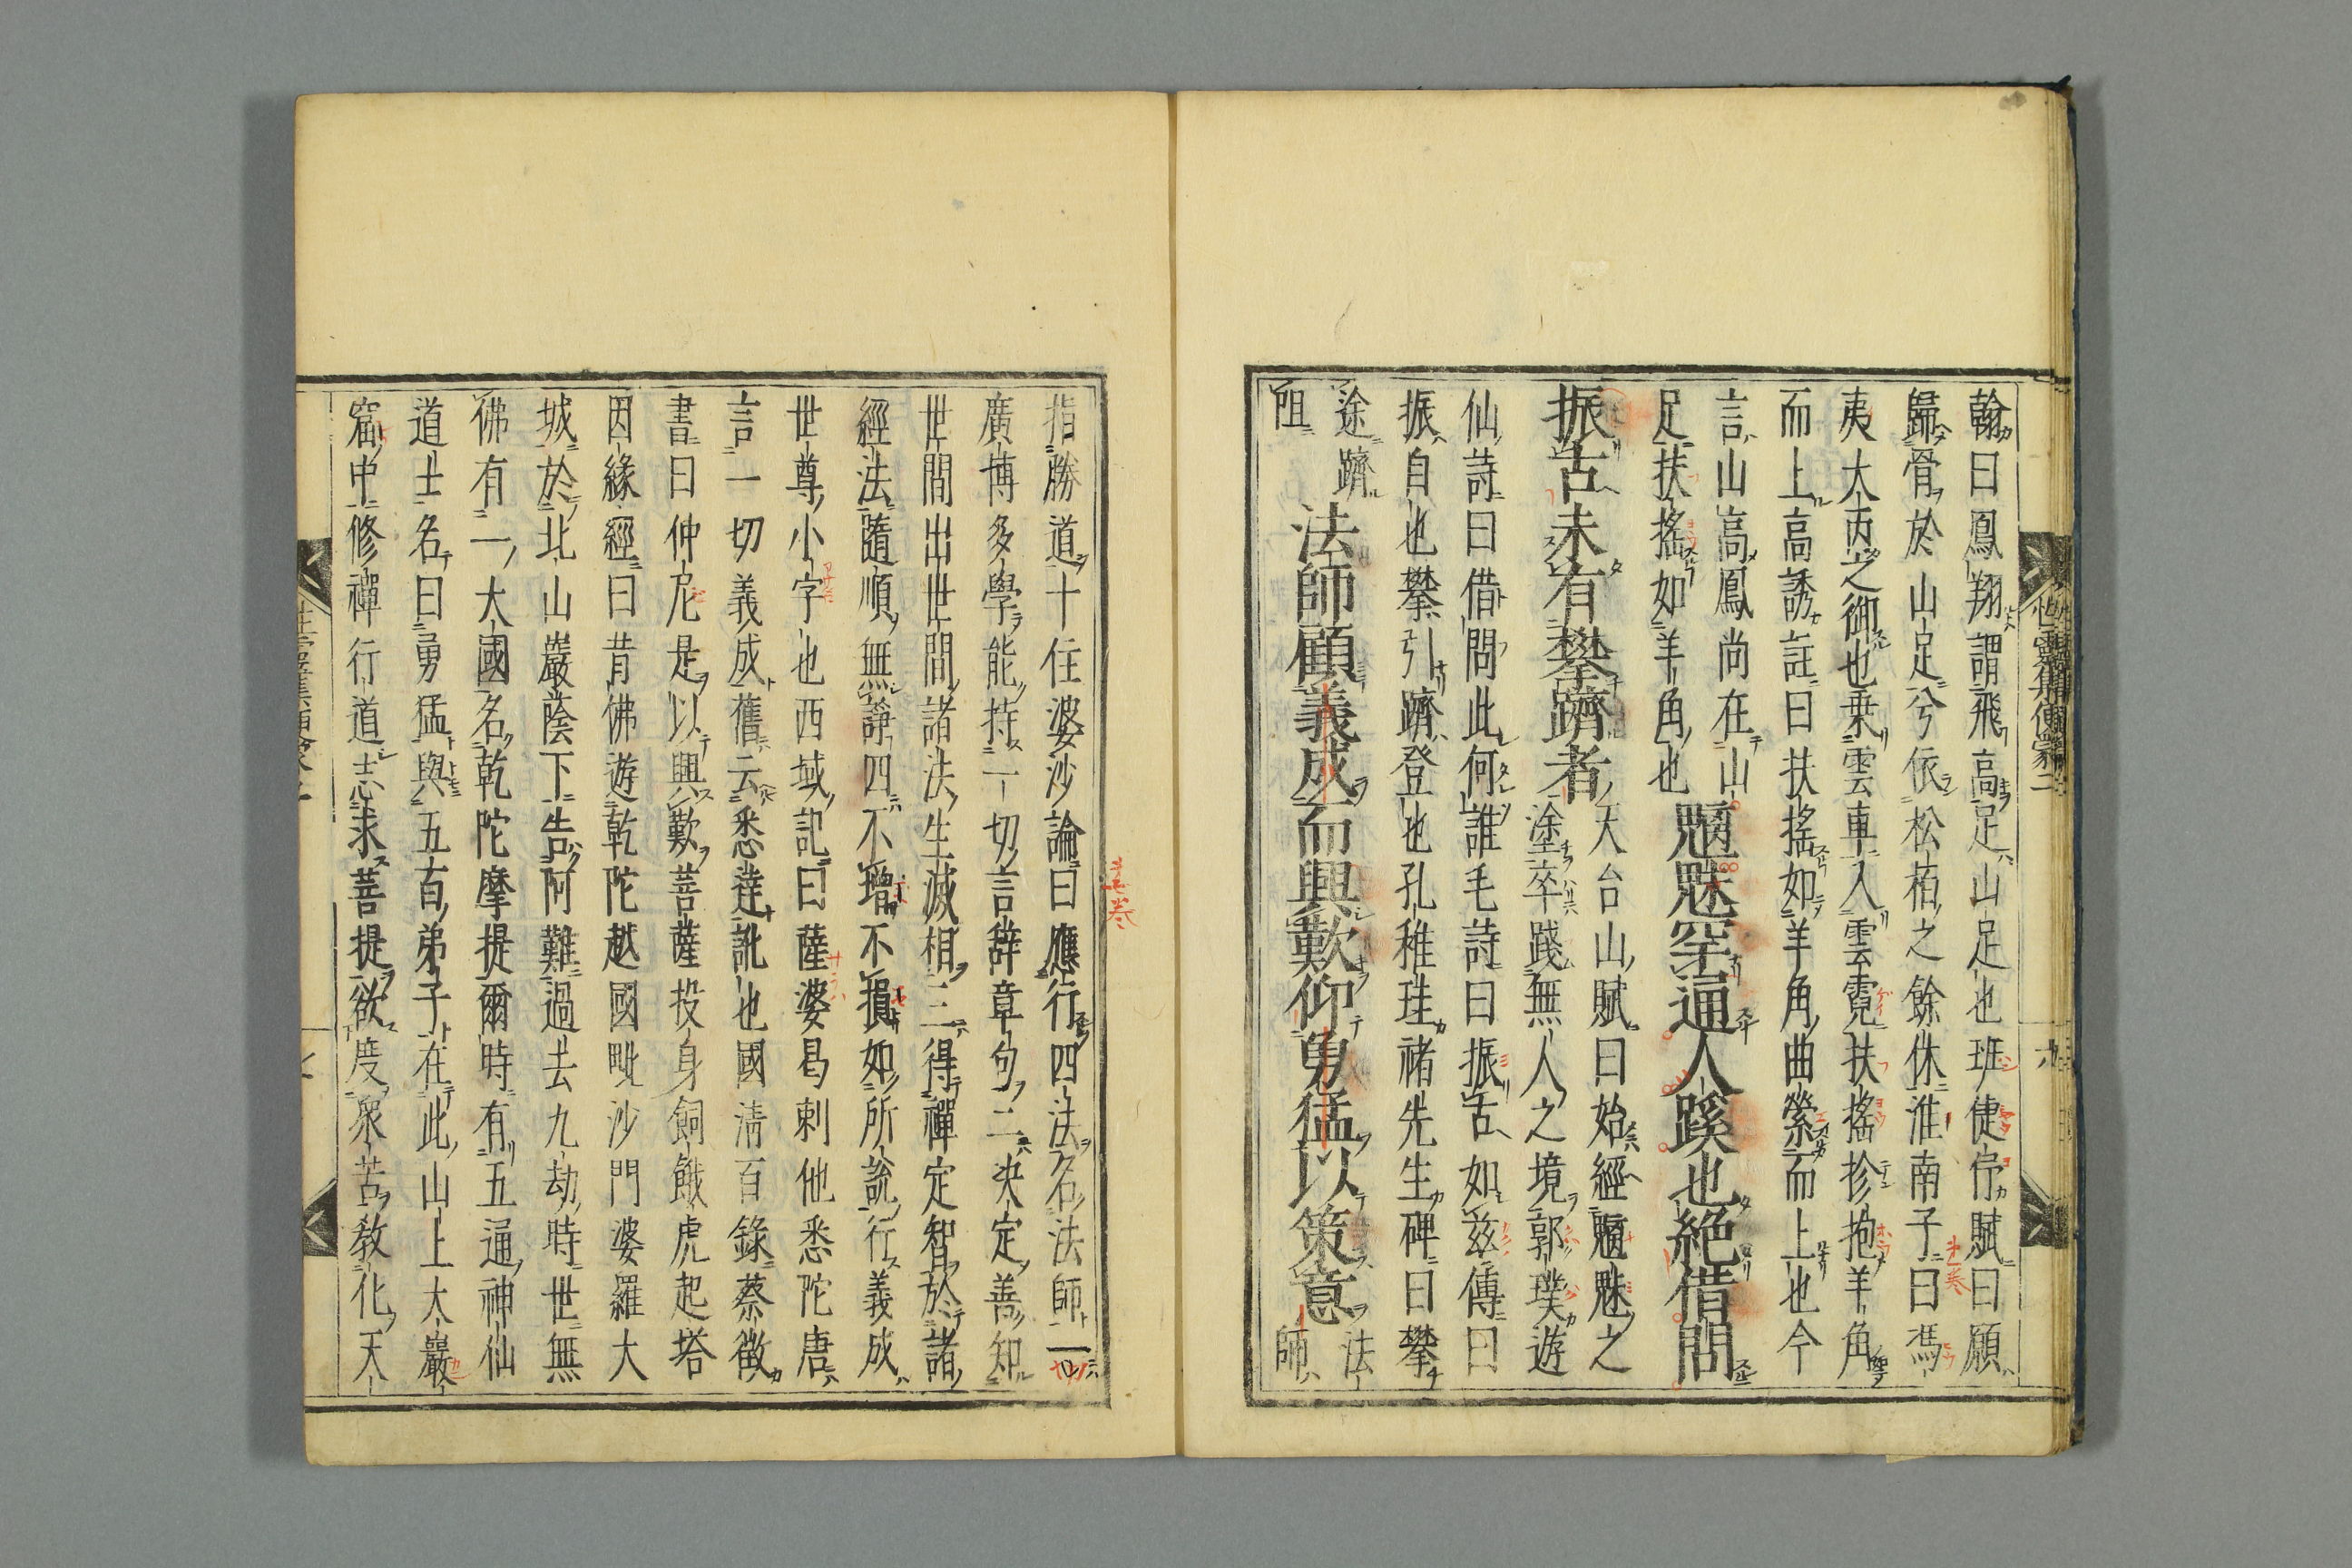 翰曰鳳翔謂飛高足山足也班倢伃賦曰願
歸骨於山足兮依松栢之餘休淮南子曰馮
夷大丙之御也乗雲車入雲霓扶搖抮抱羊角
而上高誘註曰扶搖如羊角曲縈而上也今
言山高鳳尚在山
足扶搖如羊角也
魑魅罕通人蹊也絶借問
振古未有攀躋者
天台山賦曰始經魑魅之
塗卒踐無人之境郭璞遊
仙詩曰借問此何誰毛詩曰振古如兹傳曰
振自也攀引躋登也孔稚珪禇先生碑曰攀
途躋
阻
法師顧義成而興歎仰勇猛以策意
法
師
指勝道十住婆沙論曰應行四法名法師一
廣博多學能持一切言辭章句二決定善知
世間出世間諸法生滅相三得禪定智於諸
經法隨順無諍四不增不損如所說行義成
世尊小字也西域記曰薩婆曷剌他悉陀唐
言一切義成舊云悉達訛也國淸百錄蔡徵
書曰仲尼是以興歎菩薩投身飼餓虎起塔
因緣經曰昔佛遊乾陀越國毗沙門婆羅大
城於北山巖蔭下告阿難過去九劫時世無
佛有一大國名乾陀摩提爾時有五通神仙
道士名曰勇猛與五百弟子在此山上大巖
窟中修禪行道志求菩提欲度衆苦教化天